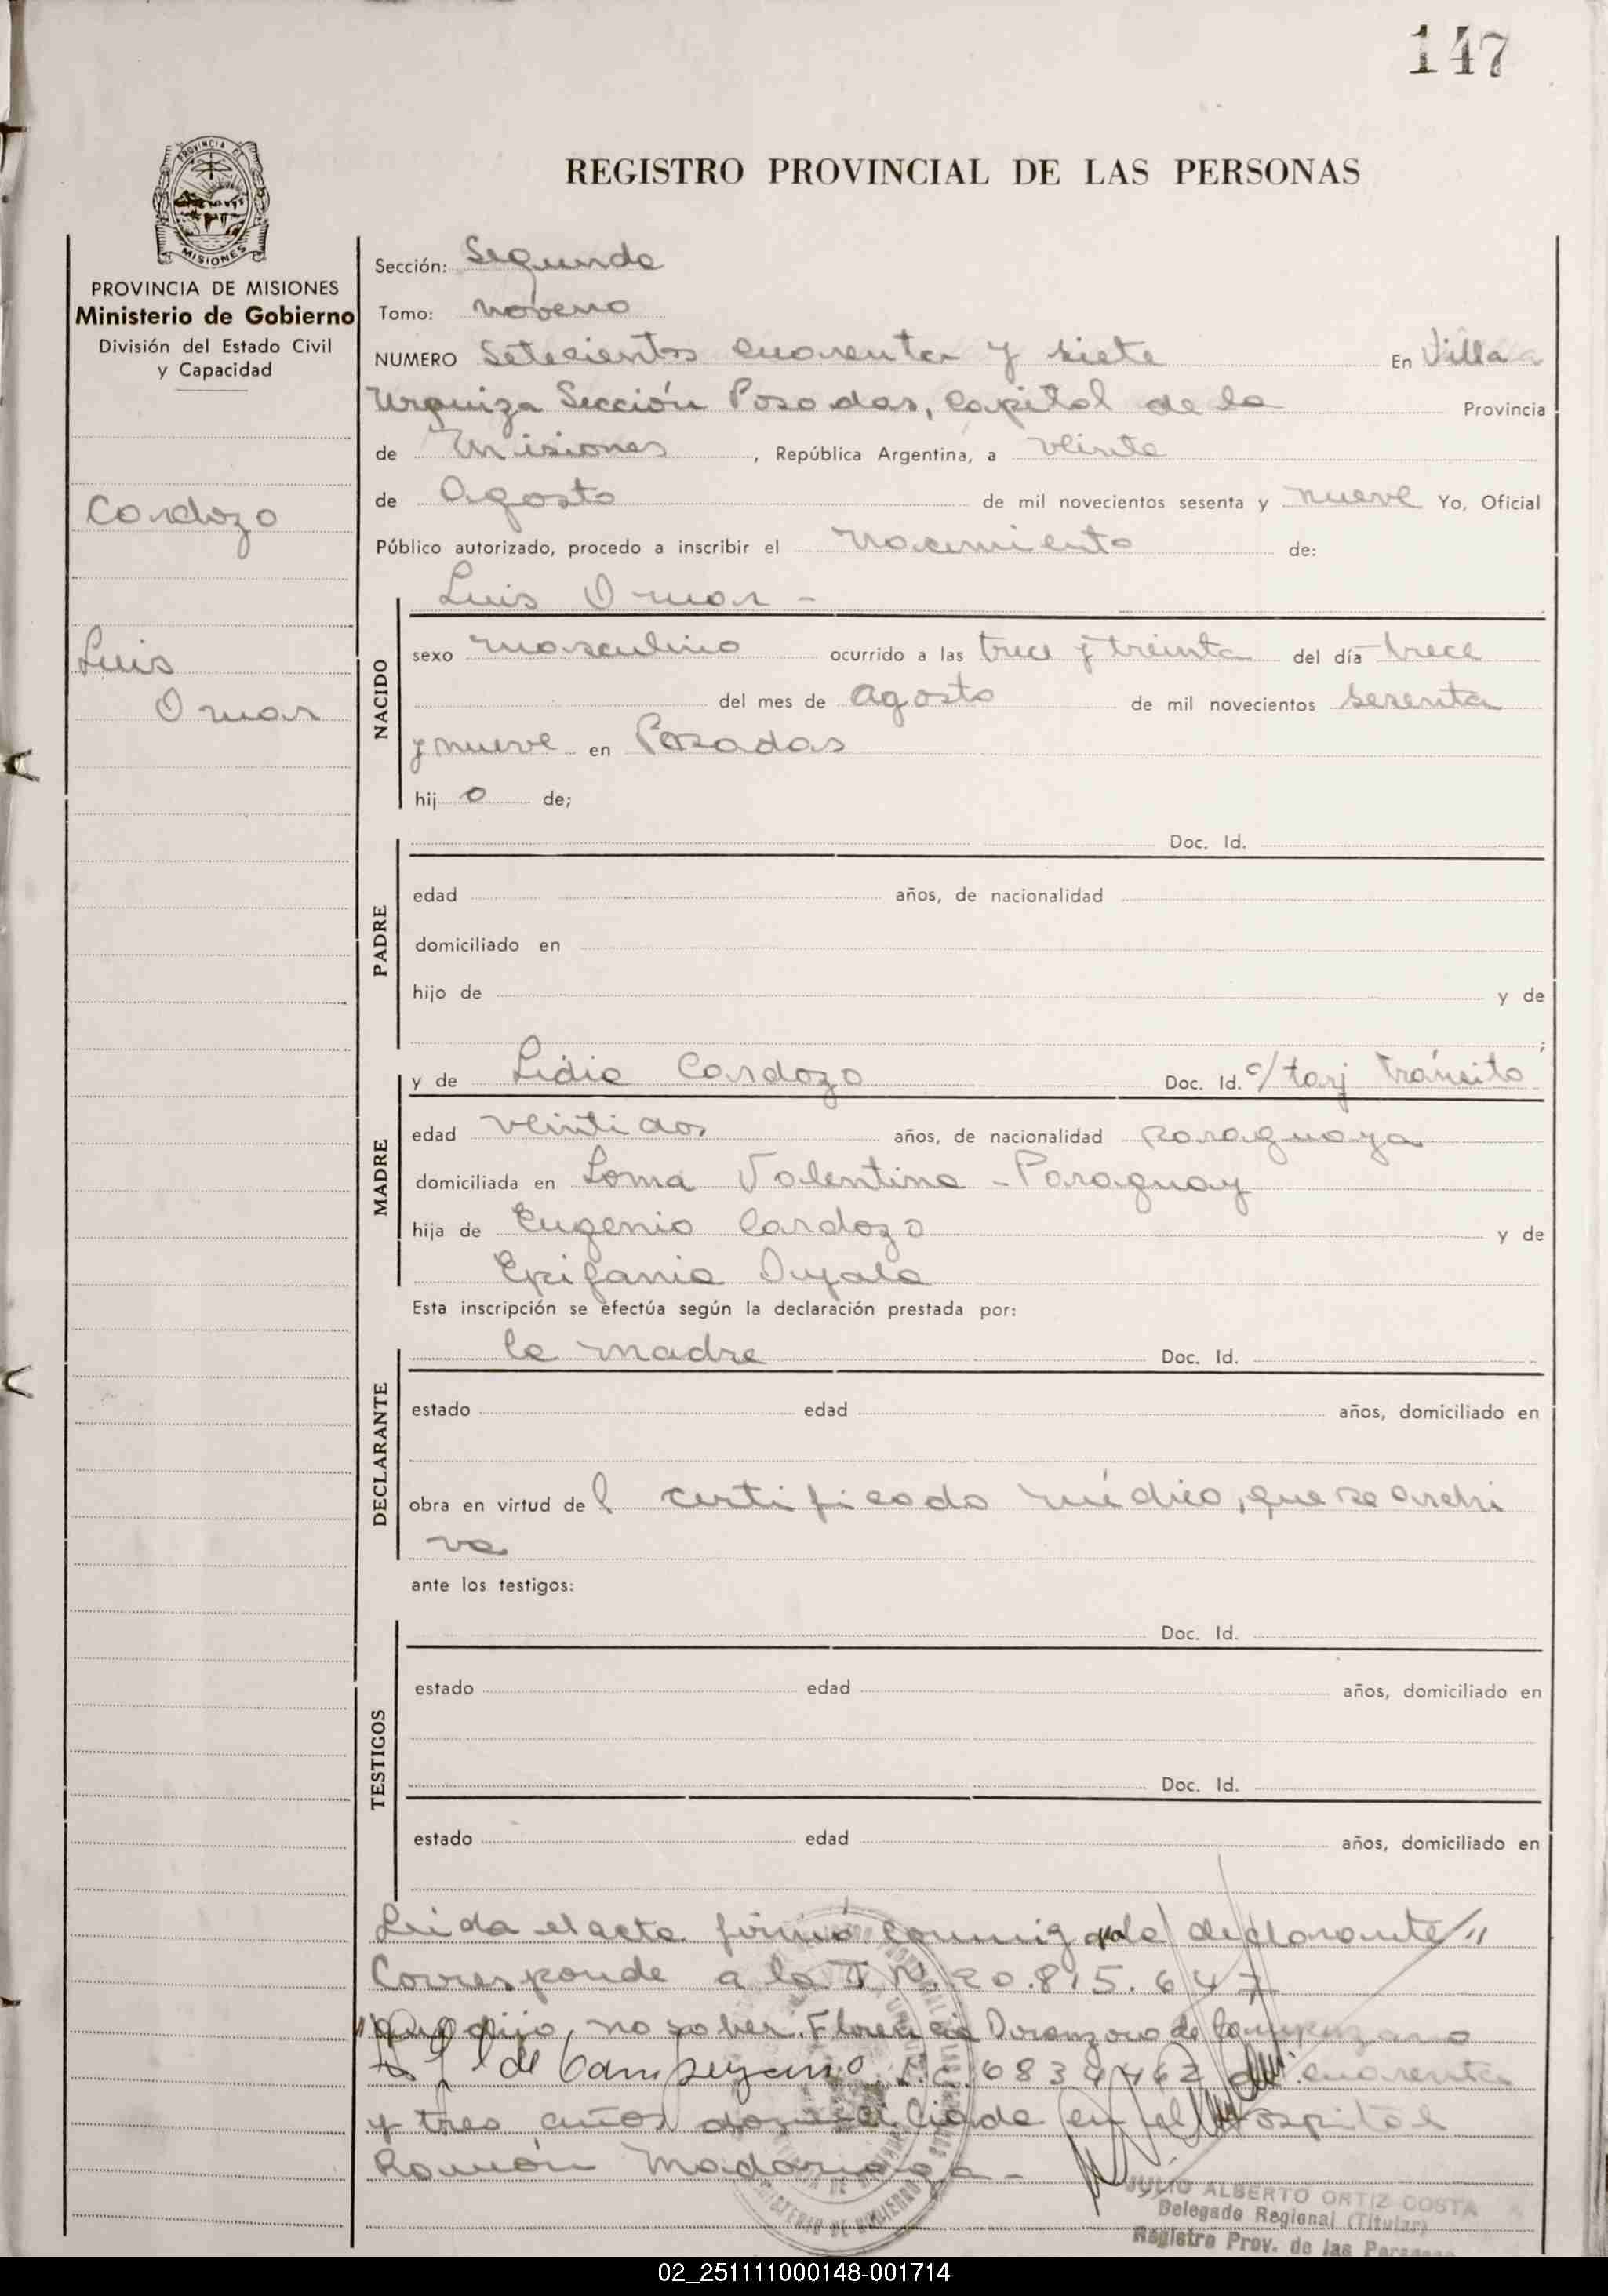 147
REGISTRO PROVINCIAL DE LAS PERSONAS
PROVINCIA DE
MISIONES
PROVINCIA DE MISIONES
Ministerio de Gobierno
División del Estado Civil
y Capacidad
Cardozo
Luis
Omar
Sección: Segunda
Tomo: noveno
NUMERO Setecientos cuarenta y siete En Villa
Urquiza Sección Posadas, Capital de la Provincia
de Misiones, República Argentina, a veinte
de Agosto de mil novecientos sesenta y nueve Yo, Oficial
Público autorizado, procedo a inscribir el nacimiento de:
Luis Omar -
NACIDO
sexo masculino ocurrido a las trece y treinta del día trece
del mes de agosto de mil novecientos sesenta
y nueve en Posadas
hij o de;
PADRE
Doc. Id.
edad años, de nacionalidad
domiciliado en
hijo de y de
;
MADRE
y de Lidia Cardozo Doc. Id. c/ tarj Tránsito
edad veintidos años, de nacionalidad paraguaya
domiciliada en Loma Valentina - Paraguay
hija de Eugenio Cardozo y de
Epifania
Esta inscripción se efectúa según la declaración prestada por:
DECLARANTE
la madre Doc. Id.
estado edad años, domiciliado en
obra en virtud de l certificado médico, que se archi
va
ante los testigos:
TESTIGOS
Doc. Id.
estado edad años, domiciliado en
Doc. Id.
estado edad años, domiciliado en
Leida el acta firmó conmigo la declarante //
Corresponde a la N. 20.815.647
"que dijo, no saber. Florencia de Campuzano
de Campuzano cuarenta
y tres años domiciliada en el Hospital
Ramón Madariaga -
JULIO ALBERTO ORTIZ COSTA
Delegado Regional (Titular)
Registro Prov. de las Personas
02_251111000148-001714